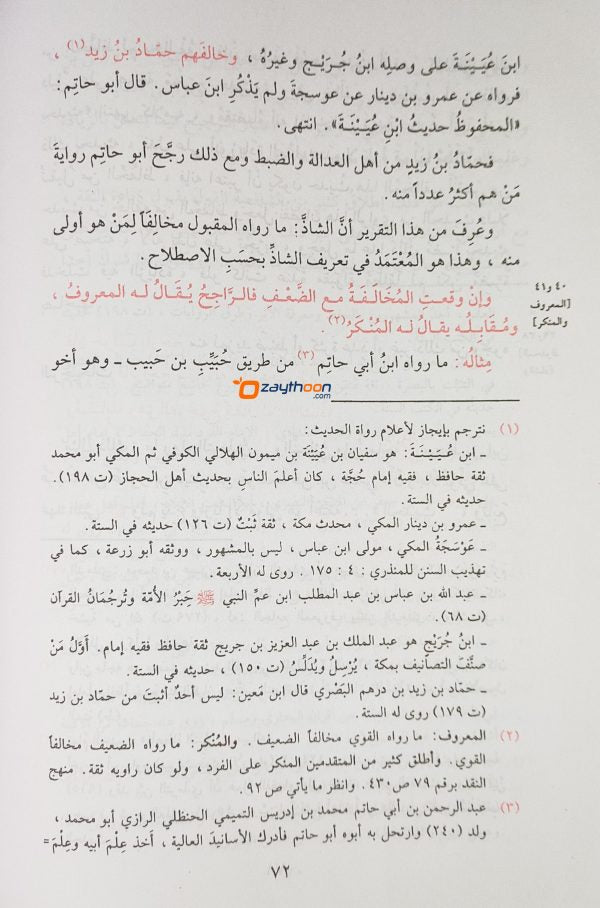 ابنَ عُيَيْنَةَ على وصلِه ابنُ جُرَيْجٍ وغيرُهُ ، وخالفَهم حمَّادُ بنُ زيد(١) ،
فرواه عن عمرو بن دينار عن عوسجة ولم يَذْكُرِ ابنَ عباس. قال أبو حاتِم:
«المحفوظُ حديثُ ابْنِ عُيَيْنَةَ». انتهى.
فحمّادُ بنُ زيدٍ من أهل العدالة والضبط ومع ذلك رجَّحَ أبو حاتِم روايةَ
مَنْ هم أكثرُ عدداً منه.
وعُرِفَ من هذا التقرير أنَّ الشاذَّ: ما رواه المقبول مخالِفاً لِمَنْ هو أولى
منه ، وهذا هو المُعْتَمَدُ في تعريف الشاذِّ بحسَبِ الاصطلاح.
٤٠ و٤١
[المعروف
والمنكر]
وإنْ وقعتِ المُخَالَفَةُ مع الضَّعْفِ فالرَّاجِحُ يُقَالُ له المعروفُ ،
ومُقَابِلُه يقالُ له المُنْكَرُ(٢).
مِثالُه: ما رواه ابنُ أبي حاتِم(٣) من طريق حُبَيِّبِ بن حَبيب ـ وهو أخو
zaythoon
.com
(١) نترجم بإيجاز لأعلام رواة الحديث:
ـ ابن عُيَيْنَةَ: هو سفيان بن عُيَيْنَة بن ميمون الهلالي الكوفي ثم المكي أبو محمد
ثقة حافظ ، فقيه إمام حُجَّة ، كان أعلمَ الناسِ بحديث أهل الحجاز (ت ١٩٨).
حديثه في الستة.
ـ عمرو بن دينار المكي ، محدث مكة ، ثقة ثَبْتٌ (ت ١٢٦) حديثه في الستة.
ـ عَوْسَجَةُ المكي ، مولى ابن عباس ، ليس بالمشهور ، ووثقه أبو زرعة ، كما في
تهذيب السنن للمنذري : ٤ : ١٧٥ . روى له الأربعة.
ـ عبد الله بن عباس بن عبد المطلب ابن عمِّ النبي ﷺ حَبْرُ الأُمّة وتُرجُمَانُ القرآن
(ت ٦٨).
ـ ابنُ جُرَيْجٍ هو عبد الملك بن عبد العزيز بن جريج ثقة حافظ فقيه إمام. أَوَّلُ مَنْ
صنَّفَ التصانيف بمكة ، يُرْسِلُ ويُدَلِّسُ (ت ١٥٠) ، حديثه في الستة.
ـ حمّاد بن زيد بن درهم البَصْري قال ابن مَعين: ليس أحدٌ أثبتَ من حمّاد بن زيد
(ت ١٧٩) روى له الستة.
(٢) المعروف: ما رواه القوي مخالفاً الضعيف. والمُنْكر: ما رواه الضعيف مخالفاً
القوي. وأطلق كثير من المتقدمين المنكر على الفرد ، ولو كان راويه ثقة. منهج
النقد برقم ٧٩ ص٤٣٠. وانظر ما يأتي ص ٩٢.
(٣) عبد الرحمن بن أبي حاتم محمد بن إدريس التميمي الحنظلي الرازي أبو محمد ،
ولد (٢٤٠) وارتحل به أبوه أبو حاتم فأدرك الأسانيدَ العالية ، أخذ عِلْمَ أبيه وعِلْمَ =
٧٢